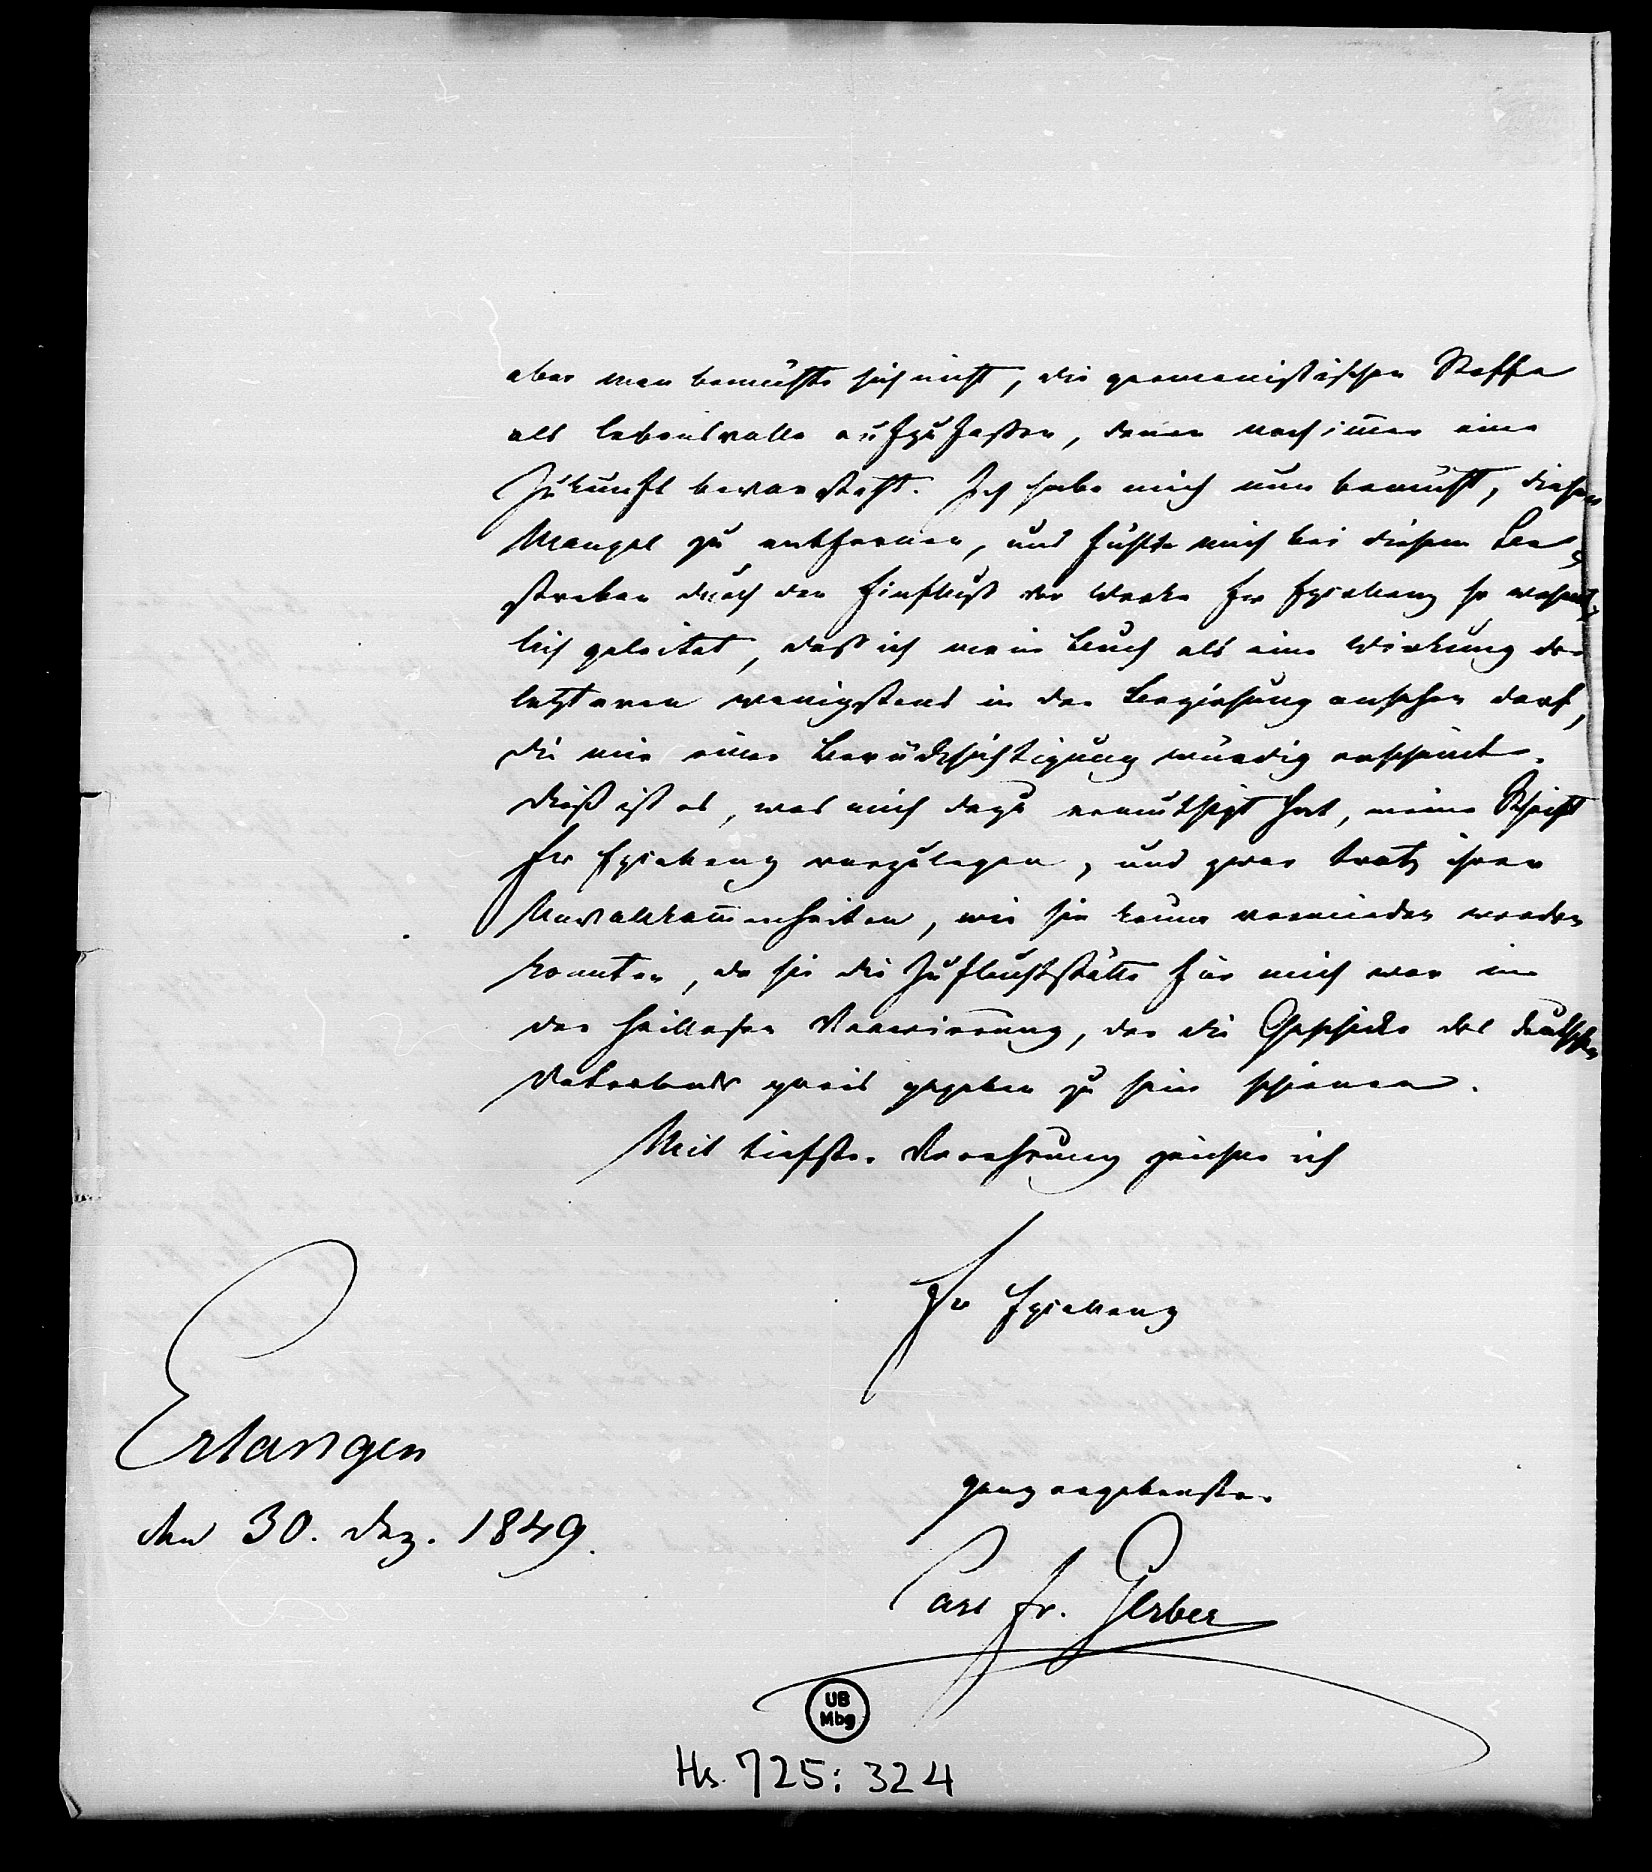 aber man bemühte sich nicht, die germanistischen Stoffe
als lebensvolle aufzufassen, denen noch im̅er eine
Zukunft bevorsteht. Ich habe mich nun bemüht, diesen
Mangel zu entfernen, und fühlte mich bei diesem Be-
streben durch den Einfluß der Werke Ew Excellenz so wesent-
lich geleitet, daß ich mein Buch als eine Wirkung der
letzteren wenigstens in der Beziehung ansehen darf,
die mir einer Berücksichtigung würdig erscheint.
Dieß ist es, was mich dazu ermuthigt hat, meine Schrift
Ew Excellenz vorzulegen, und zwar trotz ihrer
Unvollkom̅enheiten, wie sie kaum vermieden werden
konnten, da sie die Zufluchtsstätte für mich war in
der heillosen Verwirrung, der die Geschicke des deutschen
Vaterlands preis gegeben zu sein schienen.
Mit tiefster Verehrung zeichne ich
Ew Excellenz
Erlangen
den 30. Dez. 1849.
ganz ergebenster
Carl Fr. Gerber
UB
Mbg
Hs. 725: 324